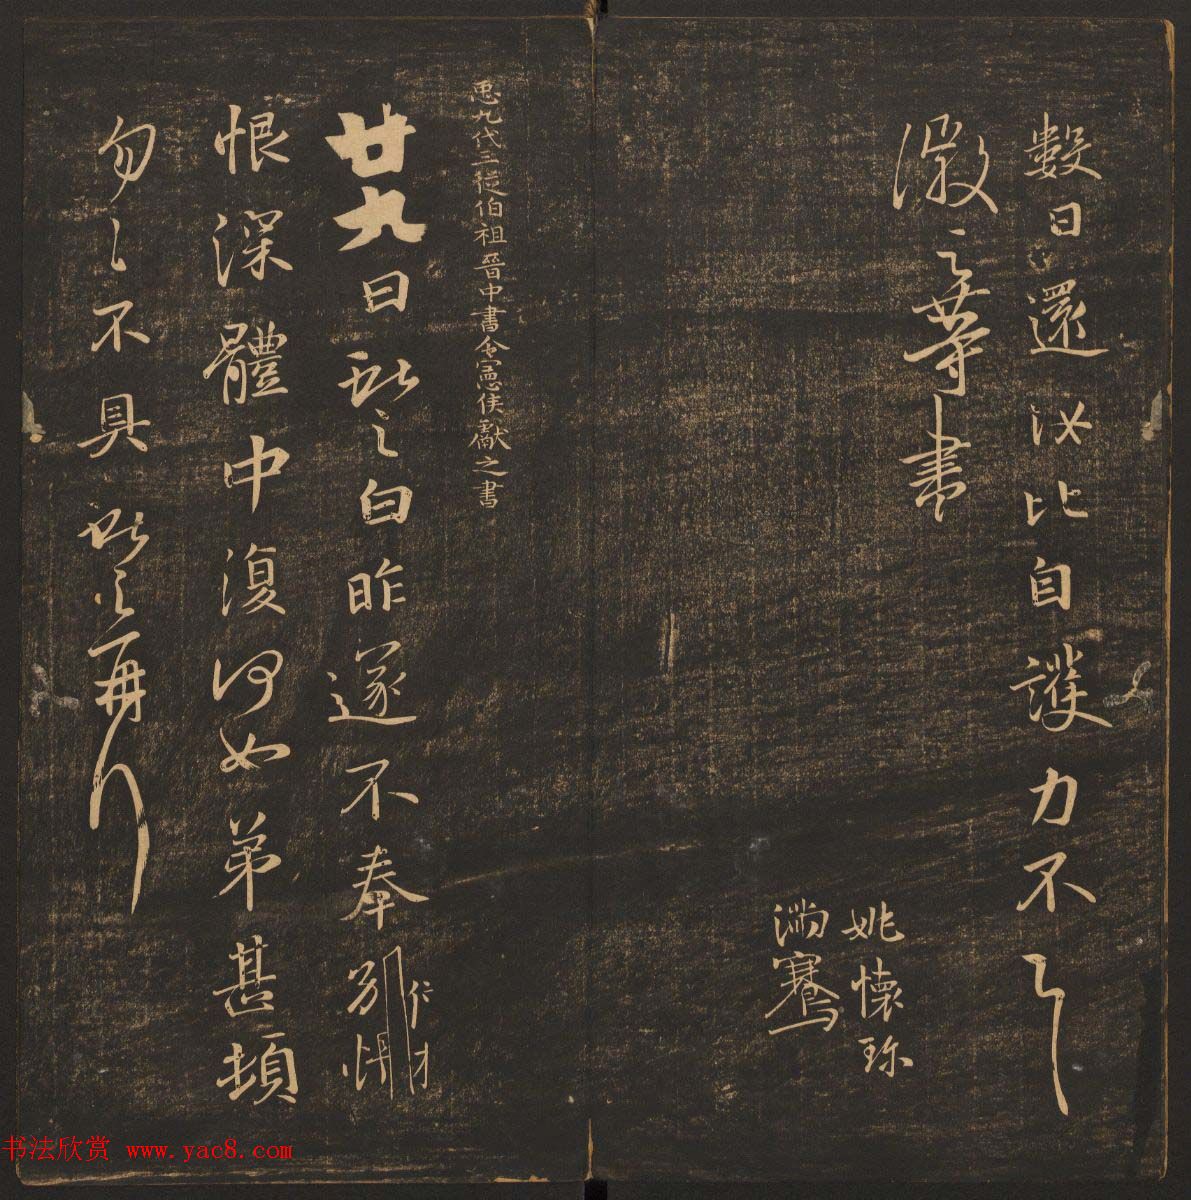 數日還汝比自護力不一一
徽之等書
姚懷珍
滿騫
臣九代三從伯祖晉中書令憲侯獻之書
廿九日獻之白昨遂不奉別悵
仁才
恨深體中復何如弟甚頓
匆匆不具獻之再拜
书法欣赏 www.yac8.com